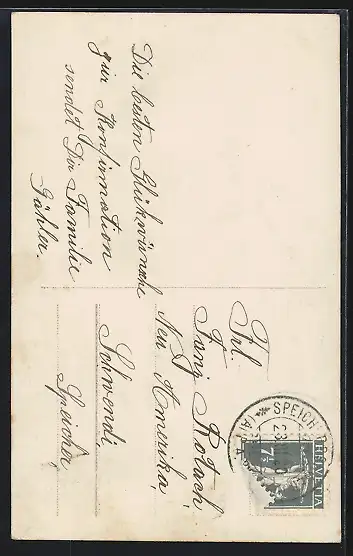 Die besten Glückwünsche
zur Konfirmation
sendet Dir Familie
Gähler.
Frl.
Fanj Rotach
Neu Amerika,
Schwendi,
Speicher
SPEICHER
HELVETIA
7½